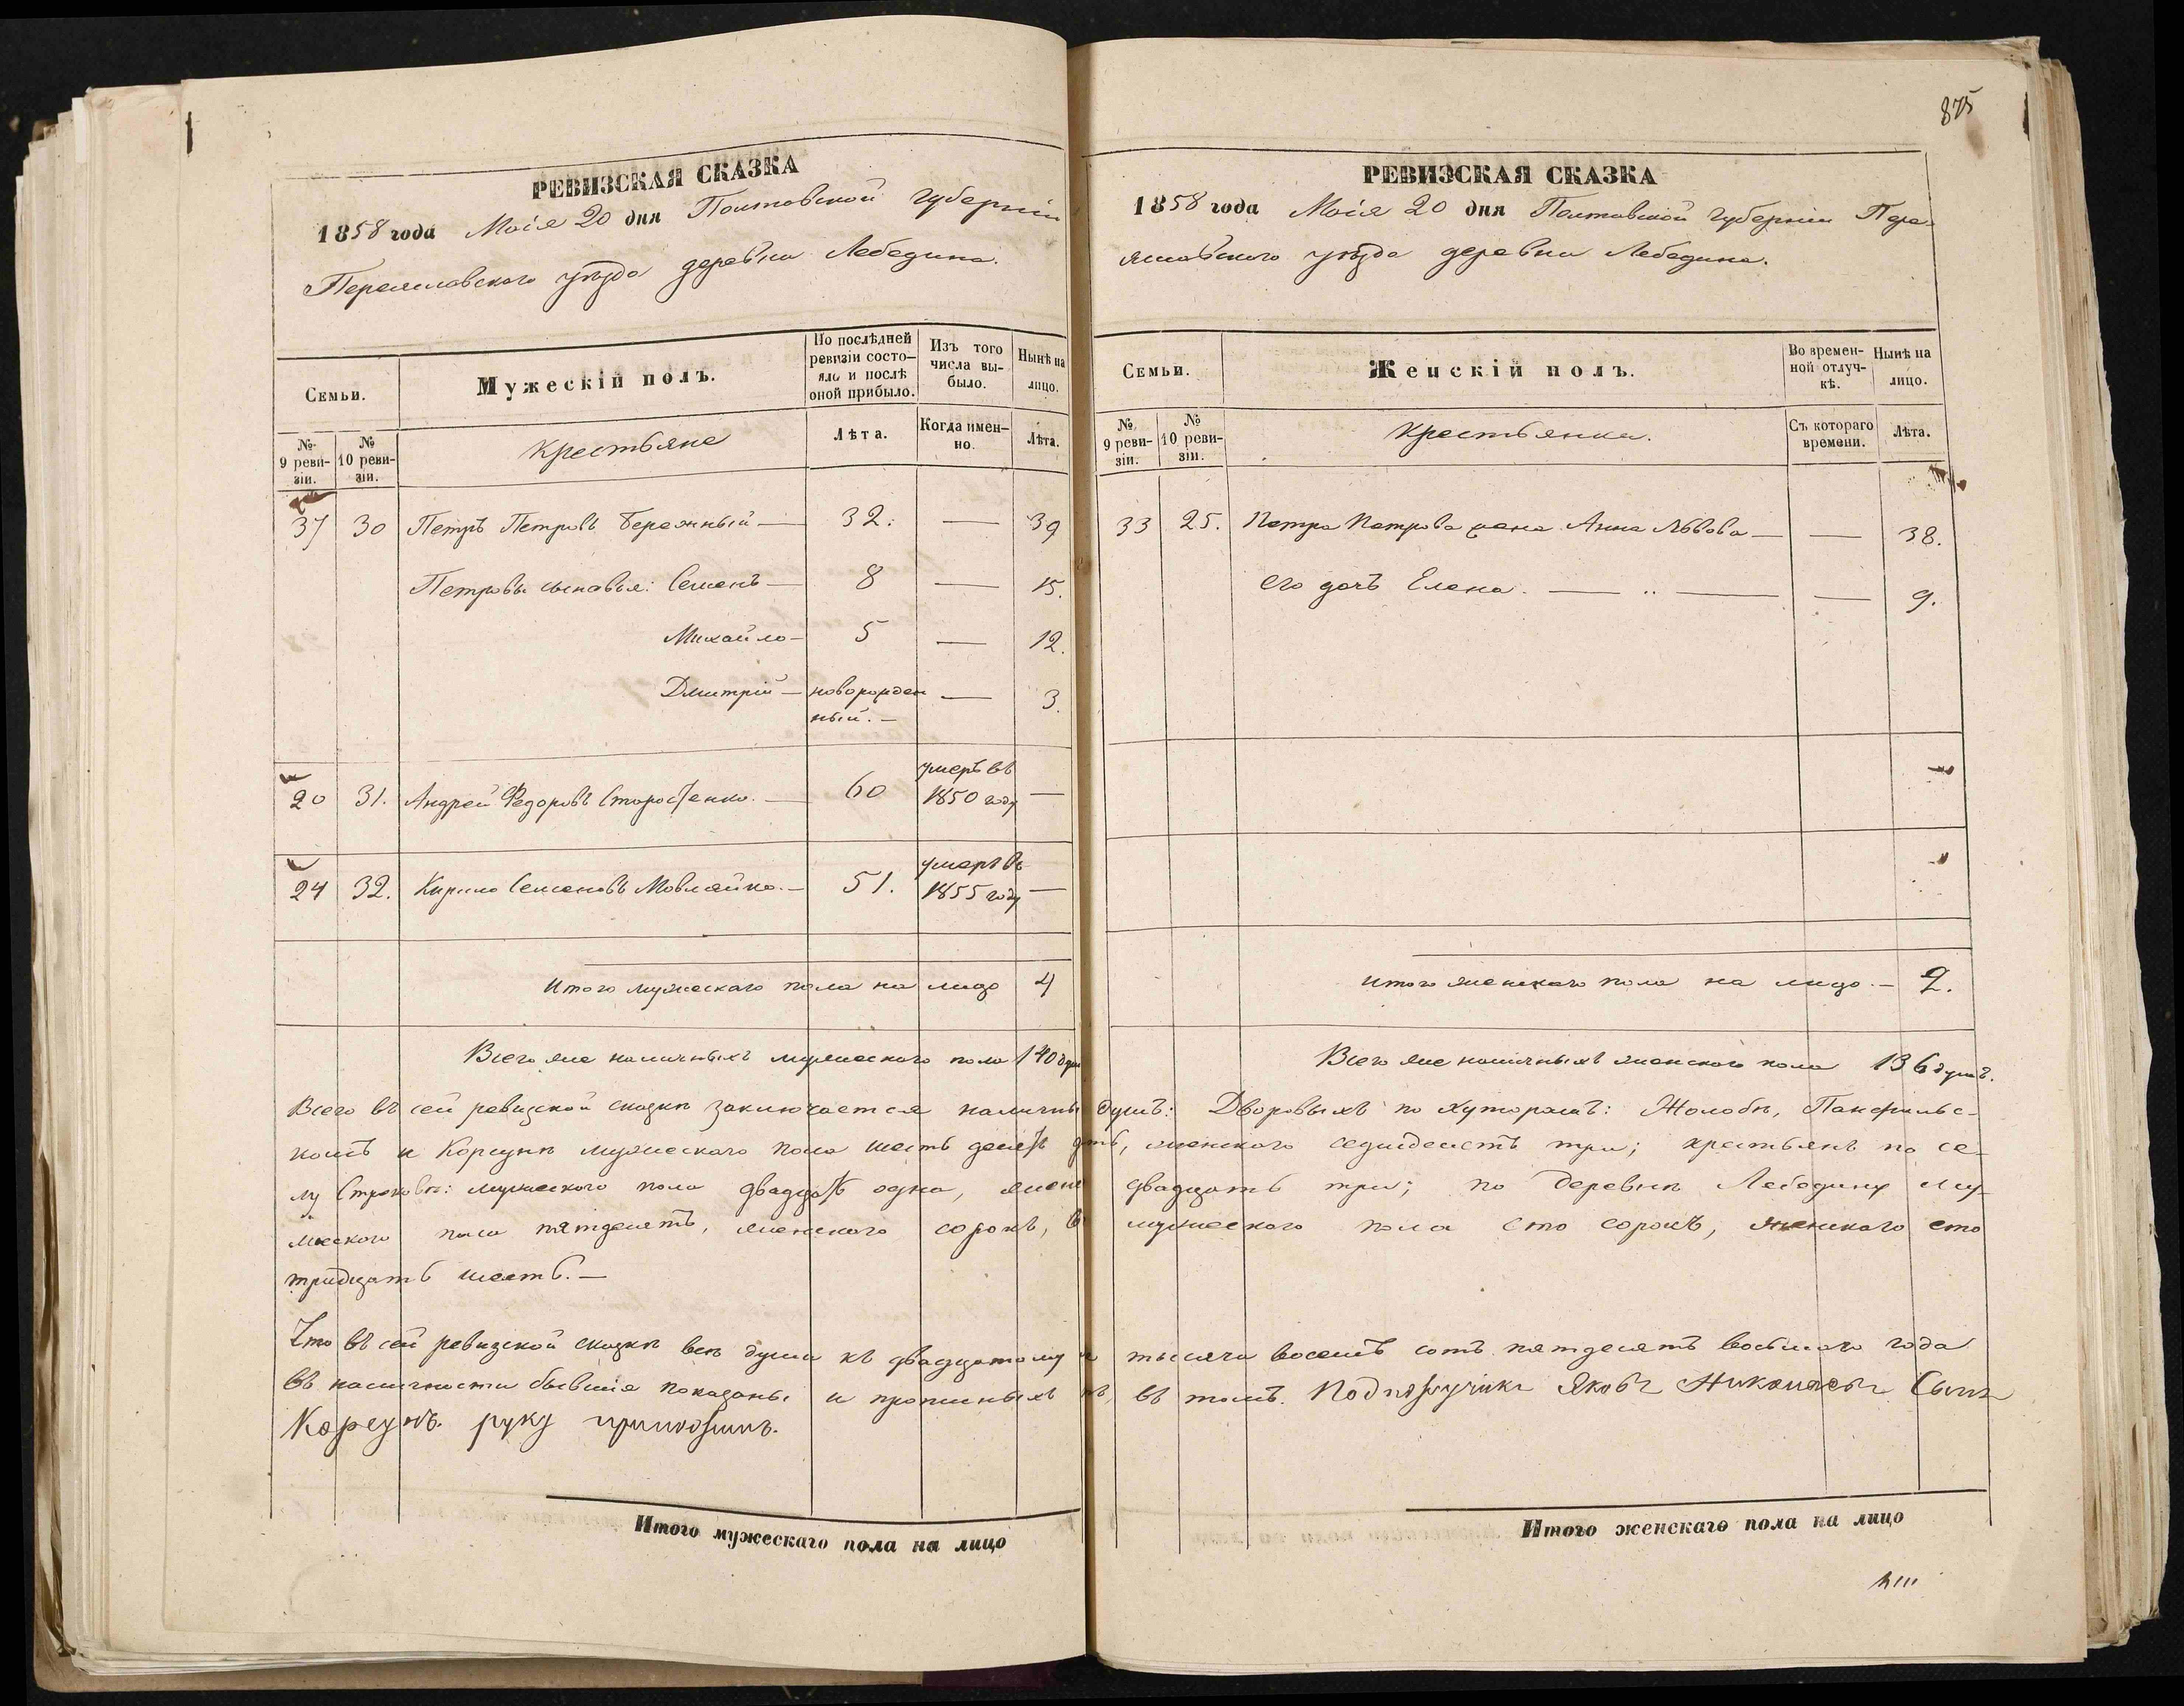 РЕВИЗСКАЯ СКАЗКА
1858 года Маія 20 дня Полтавской Губерніи
Переяславского уѣзда деревни Лебедина.
Семьи.
Мужескій полъ.
По послѣдней ревизіи состояло и послѣ оной прибыло.
Изъ того числа выбыло.
Нынѣ на лицо.
№ 9 ревизіи.
№ 10 ревизіи.
Крестьяне
Лѣта.
Когда именно.
Лѣта.
37 30 Петръ Петровъ Бережный — 32. — 39
Петровы сыновья: Семенъ — 8 — 15.
Михайло — 5 — 12.
Дмитрій — новорожденный. — — 3.
20 31. Андрей Федоровъ Старостенко. — 60 умеръ въ 1850 году —
24 32. Кирило Семеновъ Мовляйко. — 51. умеръ въ 1855 году —
Итого мужескаго пола на лицо 4
Всего же наличныхъ мужескаго пола 140 душ
РЕВИЗСКАЯ СКАЗКА
875
1858 года Маія 20 дня Полтавской Губерніи Пере-
яславского уѣзда деревни Лебедина.
Семьи.
Женскій полъ.
Во временной отлучкѣ.
Нынѣ на лицо.
№ 9 ревизіи.
№ 10 ревизіи.
Крестьянки.
Съ котораго времени.
Лѣта.
33 25. Петра Петрова жена Анна Львова — — 38.
Его дочь Елена. — „ — — 9.
Итого женскаго пола на лицо. — 2.
Всего же наличныхъ женского пола 136 душъ.
Всего въ сей ревизской сказкѣ заключается наличны душъ: Дворовыхъ по хуторамъ: Жолобѣ, Панфильс-
комъ и Корсунѣ мужескаго пола шесть десятъ , женского седмдесятъ три; крестьянъ по се-
лу Строковѣ: мужеского пола двадцать одна, женс двадцать три; по деревнѣ Лебедину му-
жеского пола пятдесятъ, женского сорокъ, мужеского пола сто сорокъ, женскаго сто
тридцать шесть. —
Что въ сей ревизской сказкѣ всѣ души къ двадцатому тысяча восемь сотъ пятдесятъ восьмаго года
въ наличности бывшія показаны и прописныхъ нѣ, въ томъ. Подпоручикъ Яковъ Николаевъ Сынъ
Корсунъ. руку приложилъ.
Итого мужескаго пола на лицо
Итого женскаго пола на лицо